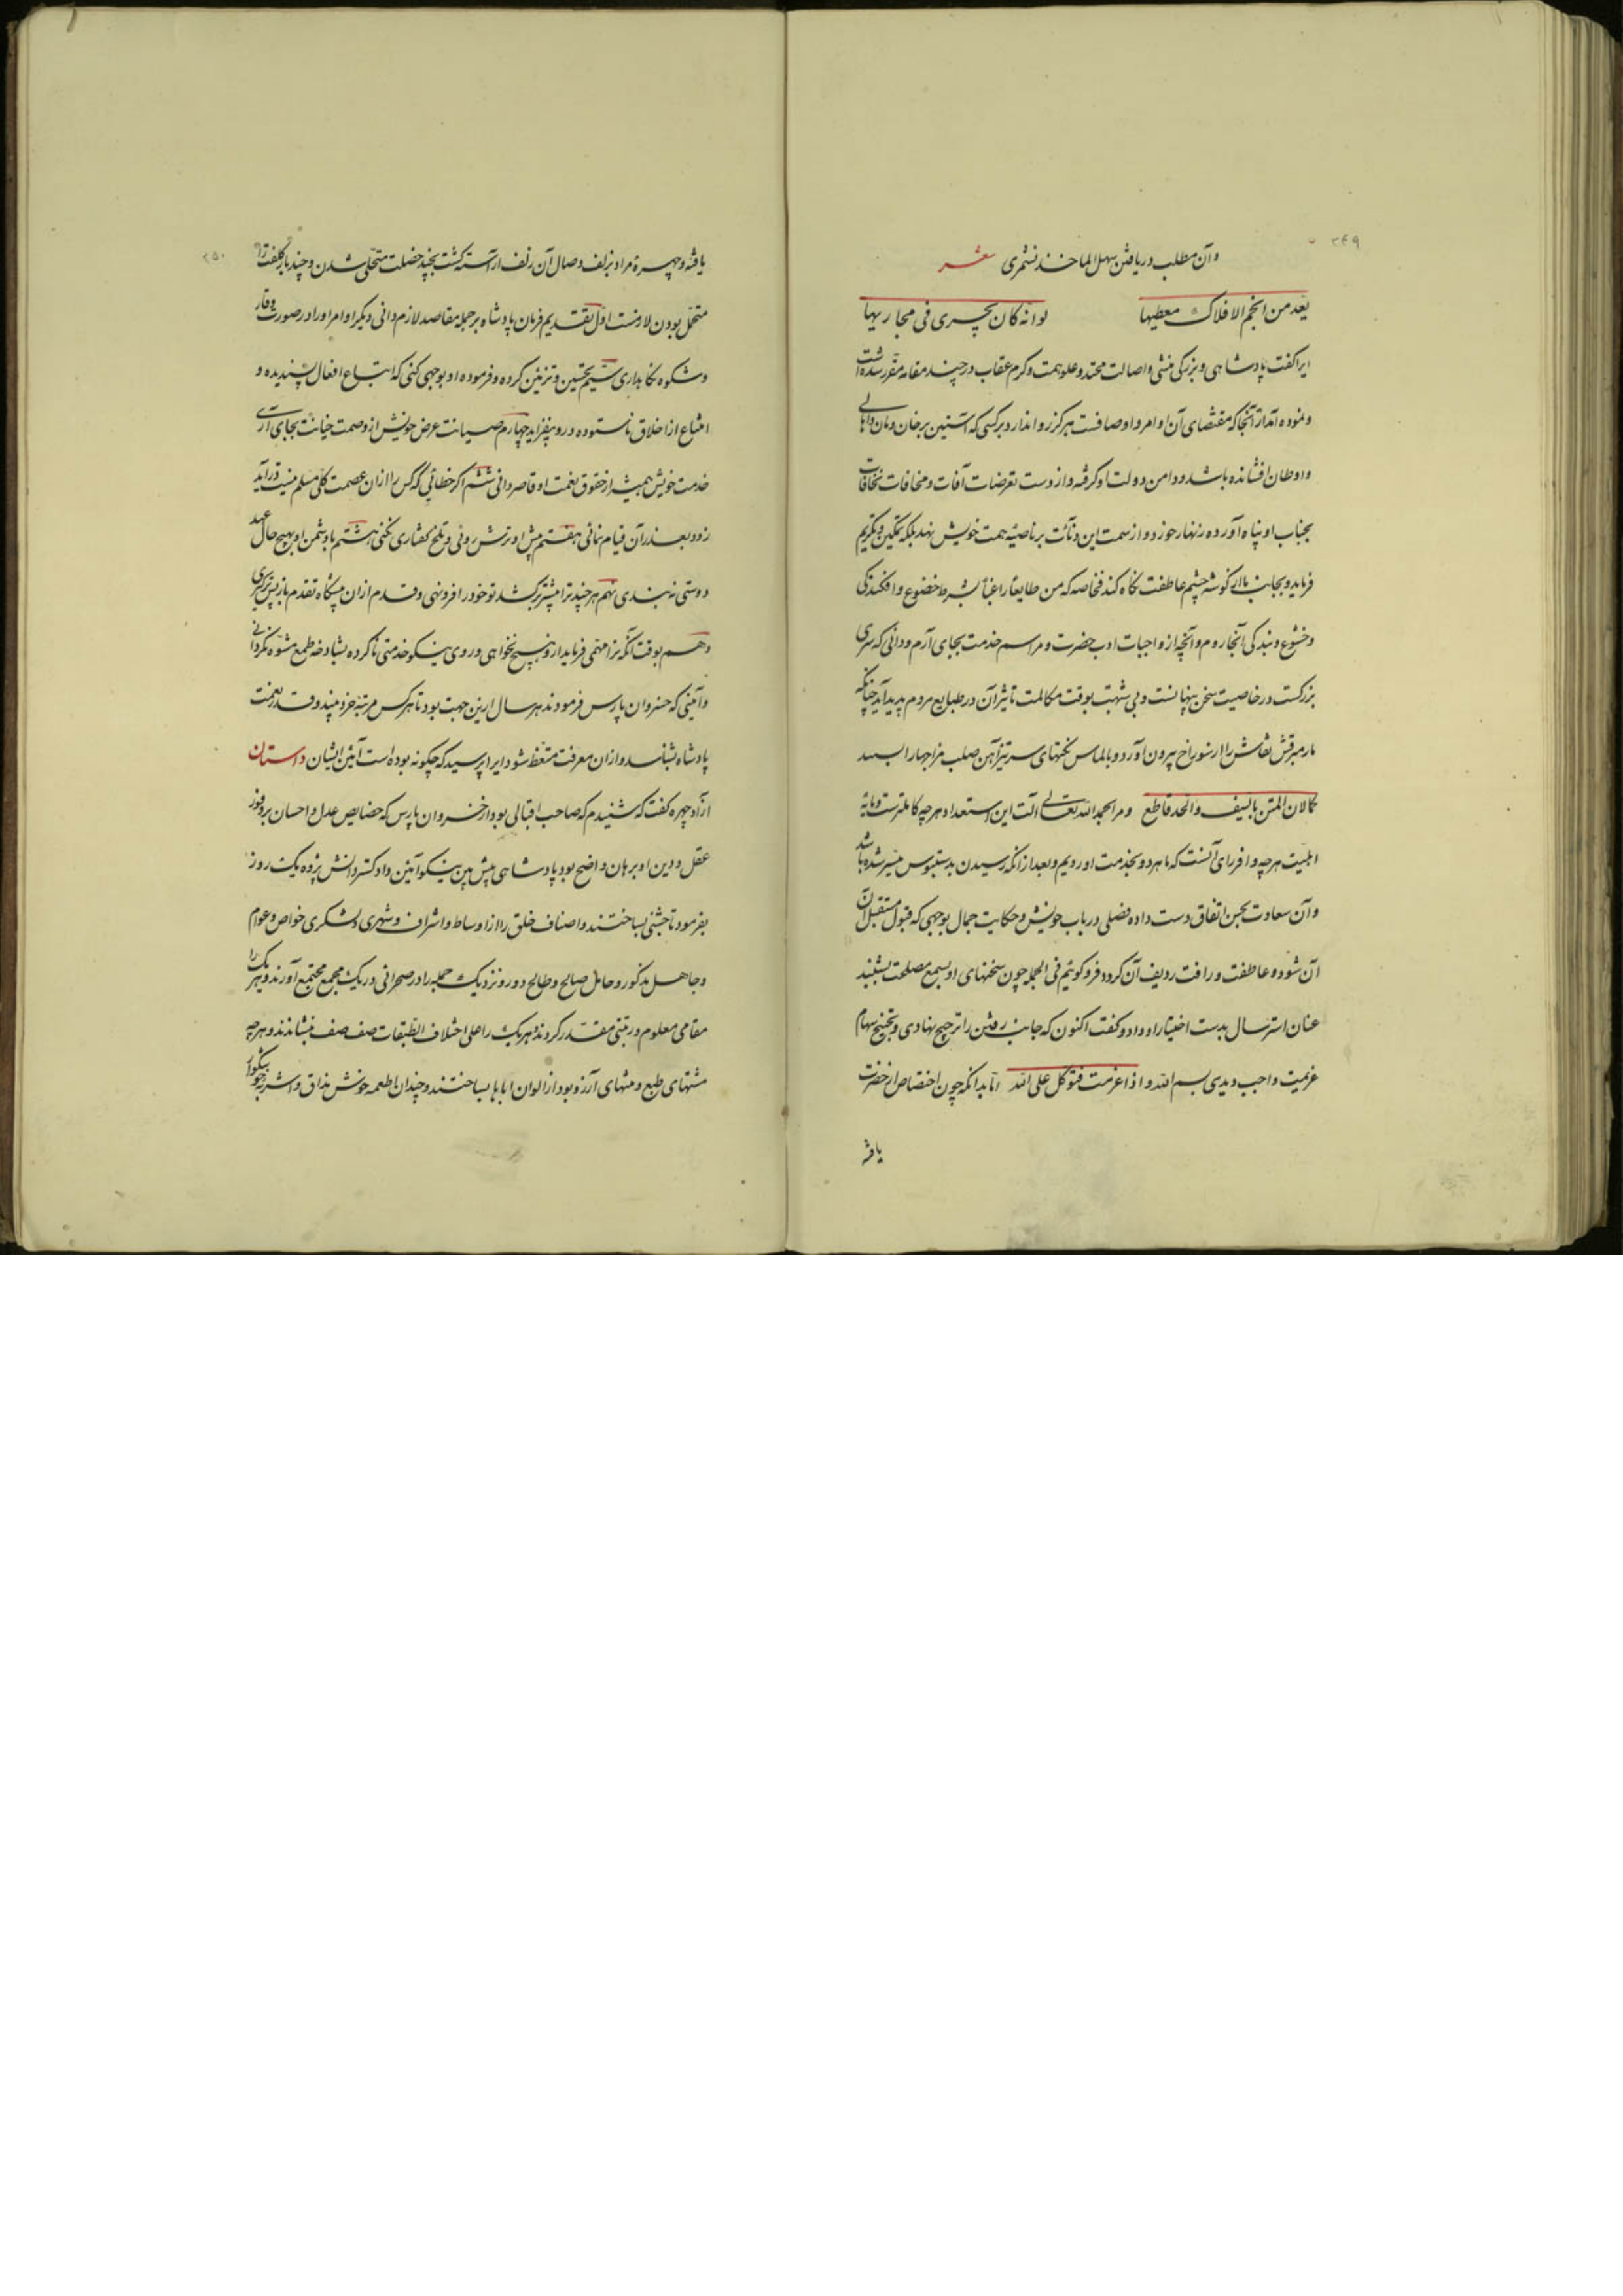 ۳۴۹
وآن مطلب دریافتن سهل الماخذ نشمری شعر
یعد من انجم الافلاک معطیها لو انه کان یجری فی مجاریها
ایرا کفت پادشاهی و بزرکی منشی و اصالت محتد و علو همت و کرم عقاب در چند مقامه مقرر شده است
و نموده آمد از آنجا که مقتضای آن اوامر و اوصافست هرکز روا ندارد بر کسی که آستین بر خان و مان و اهالی
و اوطان افشانده باشد و دامن دولت او کرفته و از دست تعرضات آفات و مخافات
بجناب او پناه آورده زنهار خورد و از سمت این دنائت بر ناصیه همت خویش نهد بلکه تمکین و تکریم
فرماید و بجانب ما از کوشه چشم عاطفت نکاه کند فخاصه که من طایعا راغبا بشرط خضوع و افکندکی
و خشوع و بندکی آنجا روم و آنچه از واجبات ادب حضرت و مراسم خدمت بجای آرم و دانی که سری
بزرکست در خاصیت سخن پنهانست و بی شبهت بوقت مکالمت تاثیر آن در طبایع مردم پدید آید چنانکه
مار مبرقش نقاش را از سوراخ بیرون آورد و بالماس نکتهای سرتیز آهن صلب مزاجها را بسنبد
کمالان المتن بالسیف والحد قاطع و مرا بحمد الله تعالی آلت این استعداد هرچه کاملترست و مایه
اهلیت هرچه وافر رای آنست که ما هر دو بخدمت او رویم و بعد از آنکه رسیدن بدستبوس میسر شده باشد
و آن سعادت بحسن اتفاق دست داده فصلی در باب خویش و حکایت جمال بوجهی که قبول مستقبل آن
آن شود و عاطفت و رافت ردیف آن کردد فرو کوئیم فی الجمله چون سخنهای او بسمع مصلحت بشنید
عنان استرسال بدست اختیار او داد و کفت اکنون که جانب رفتن را ترجیح نهادی و تجنیح سهام
عزیمت واجب دیدی بسم الله و اذا عزمت فتوکل علی الله اما بدانکه چون اختصاص از حضرت
یافته
۳۵۰
یافته و چهره مراد بزلف وصال آن زلف آراسته کشت بچند خصلت متحلی شدن و چند بار کلفت را
متحمل بودن لازمست اول تقدیم فرمان پادشاه بر جمله مقاصد لازم دانی دیکر اوامر او را در صورت وقار
و شکوه نکاهداری سیم تحسین و تزئین کرده و فرموده او بوجهی کنی که اتباع افعال پسندیده و
امتناع از اخلاق ناستوده درو بیفزاید چهارم صیانت عرض خویش از وصمت خیانت بجای آری
خدمت خویش همیشه از حقوق نعمت او قاصر دانی ششم اکر خطائی که کس را از آن عصمت کلی مسلم نیست در آید
زود بعذر آن قیام نمائی هفتم پیش او ترش روئی و تلخ کفتاری نکنی هشتم با دشمن او بهیچ حال عهد
دوستی نه بندی نهم هر چند ترا پیشتر برکشد تو خود را فرو نهی و قدم از آن پیشکاه تقدم باز پس تر بری
دهم بوقت آنکه ترا مهمی فرماید ازو هیچ نخواهی و روی نیکو خدمتی ناکرده بشادخه طمع مشوه نکردانی
و آئینی که خسروان پارس فرمودند هر سال ازین جهت بود تا هرکس مرتبه خود بیند و قدر نعمت
پادشاه بشناسد و از آن معرفت متعظ شود ایرا پرسید که چکونه بوده است آئین ایشان داستان
آزاد چهره کفت که شنیدم که صاحب اقبالی بود از خسروان پارس که خصایص عدل و احسان بر وفور
عقل و دین او برهان واضح بود پادشاهی پیش بین نیکو آئین داد کستر دانش پژوه یک روز
بفرمود تا جشنی بساختند و اصناف خلق را از اوساط و اشراف و شهری و لشکری خواص و عوام
و جاهل مذکور و خامل صالح و طالح دور و نزدیک جمله را در صحرائی در یک مجمع مجتمع آورند و هر یک را
مقامی معلوم و رتبتی مقدر کردند و هر یک را علی اختلاف الطبقات صف صف بنشاندند و هرچه
مشتهای طبع و منتهای آرزو بود از الوان اباها بساختند و چندان اطعمه خوش مذاق و اشربه خوشکوار